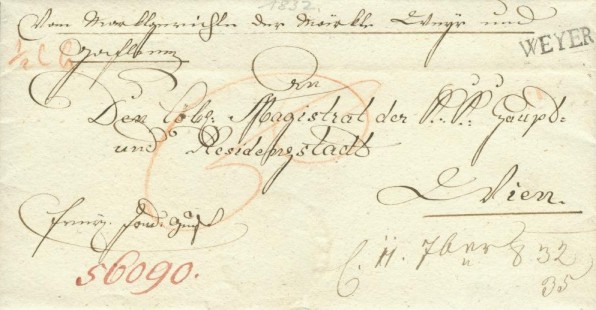 1832.
Vom Marktgerichte der Märkte Weyr und
Gaflenz
WEYER
An
Den Löbl: Magistrat der K: K: Haupt=
und Residenzstadt
Wien.
56090.
11. 7ber 832
35